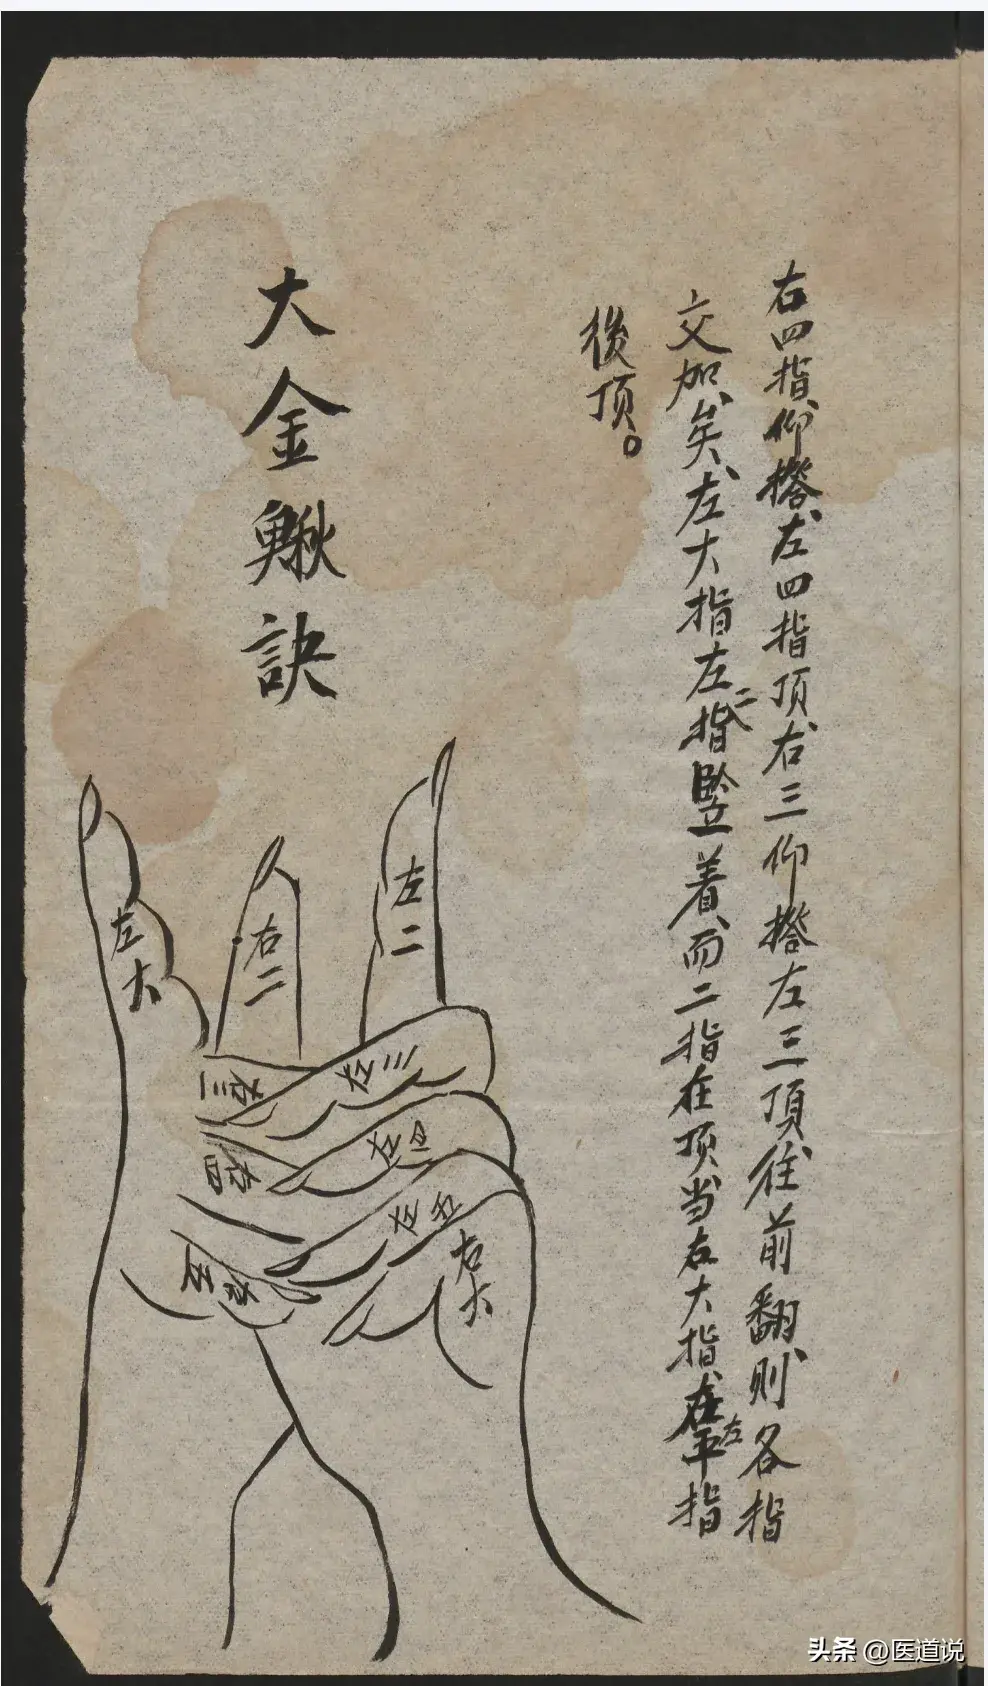 右四指仰撘左四指頂右三仰撘左三頂往前翻则各指
交加矣左大指左二指竪着而二指在顶当右大指在左中指
後顶。
大金鳅訣
左大
右二
左二
右三
左三
右四
左四
右五
左五
右大
头条 @医道说